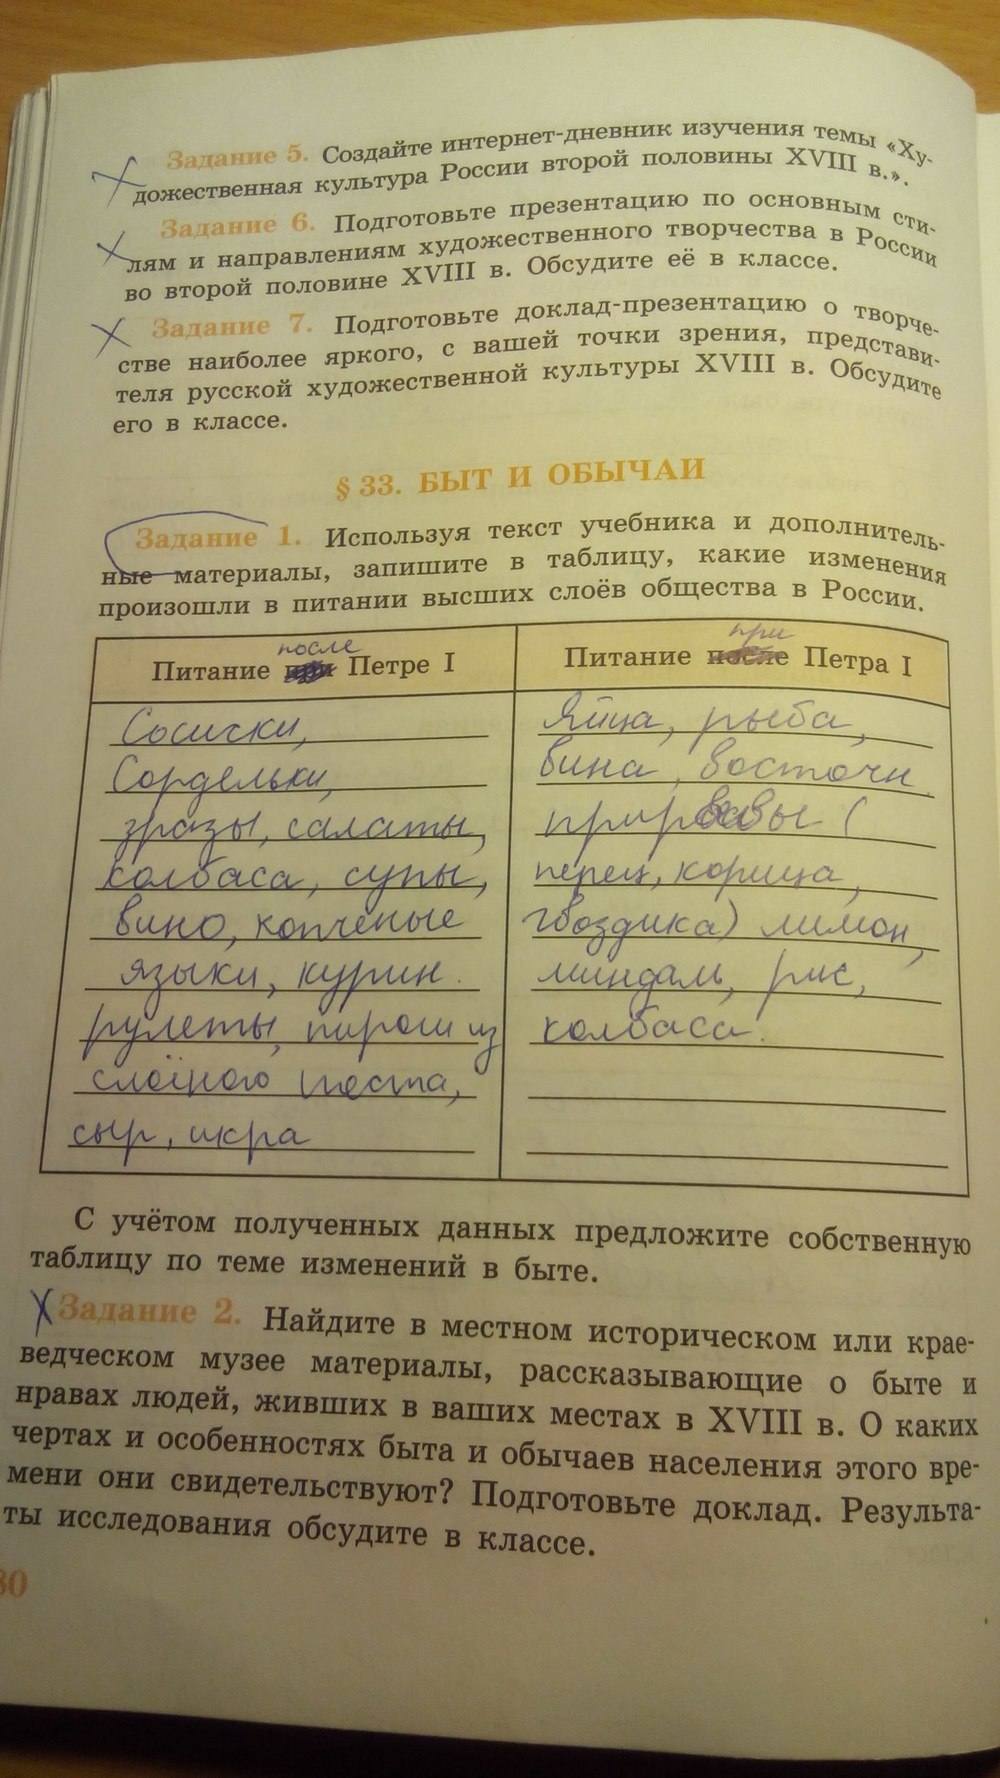 Задание 5. Создайте интернет-дневник изучения темы «Ху-
дожественная культура России второй половины XVIII в.».
Задание 6. Подготовьте презентацию по основным сти-
лям и направлениям художественного творчества в России
во второй половине XVIII в. Обсудите её в классе.
Задание 7. Подготовьте доклад-презентацию о творче-
стве наиболее яркого, с вашей точки зрения, представи-
теля русской художественной культуры XVIII в. Обсудите
его в классе.
§ 33. БЫТ И ОБЫЧАИ
Задание 1. Используя текст учебника и дополнитель-
ные материалы, запишите в таблицу, какие изменения
произошли в питании высших слоёв общества в России.
после
Питание при Петре I
Сосиски,
Сордельки,
зразы, салаты,
колбаса, супы,
вино, копчёные
языки, курин.
рулеты, пироги из
слоёного теста,
сыр, икра
при
Питание после Петра I
Яйца, рыба,
вина, восточн.
приправы (
перец, корица,
гвоздика) лимон,
миндаль, рис,
колбаса.
С учётом полученных данных предложите собственную
таблицу по теме изменений в быте.
Задание 2. Найдите в местном историческом или крае-
ведческом музее материалы, рассказывающие о быте и
нравах людей, живших в ваших местах в XVIII в. О каких
чертах и особенностях быта и обычаев населения этого вре-
мени они свидетельствуют? Подготовьте доклад. Результа-
ты исследования обсудите в классе.
80